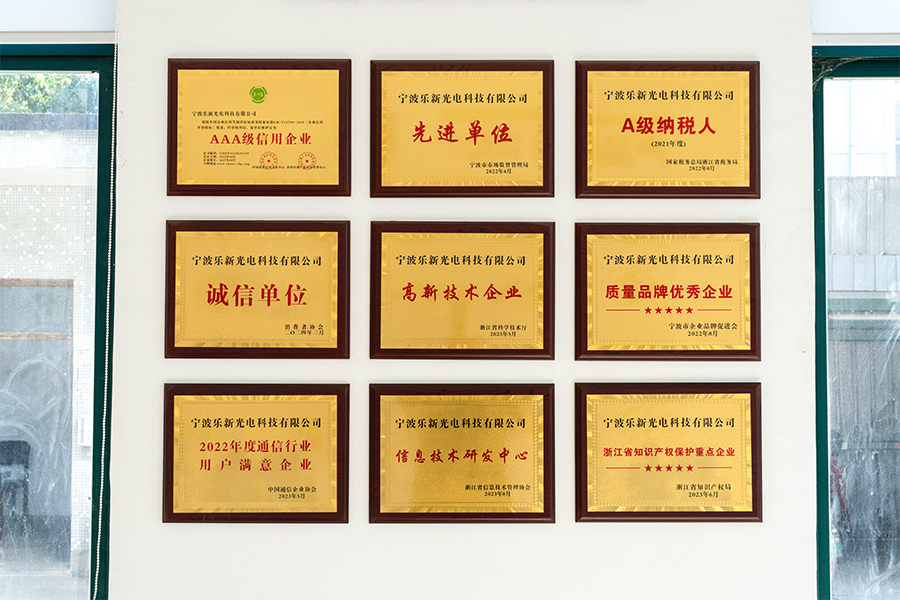 宁波乐新光电科技有限公司
AAA级信用企业
宁波乐新光电科技有限公司
先进单位
宁波市市场监督管理局
2022年4月
宁波乐新光电科技有限公司
A级纳税人
(2021年度)
国家税务总局浙江省税务局
2022年8月
宁波乐新光电科技有限公司
诚信单位
消费者协会
二〇二四年三月
宁波乐新光电科技有限公司
高新技术企业
浙江省科学技术厅
2023年5月
宁波乐新光电科技有限公司
质量品牌优秀企业
宁波市企业品牌促进会
2022年8月
宁波乐新光电科技有限公司
2022年度通信行业
用户满意企业
中国通信企业协会
2023年5月
宁波乐新光电科技有限公司
信息技术研发中心
浙江省信息技术管理协会
2023年8月
宁波乐新光电科技有限公司
浙江省知识产权保护重点企业
浙江省知识产权局
2023年6月